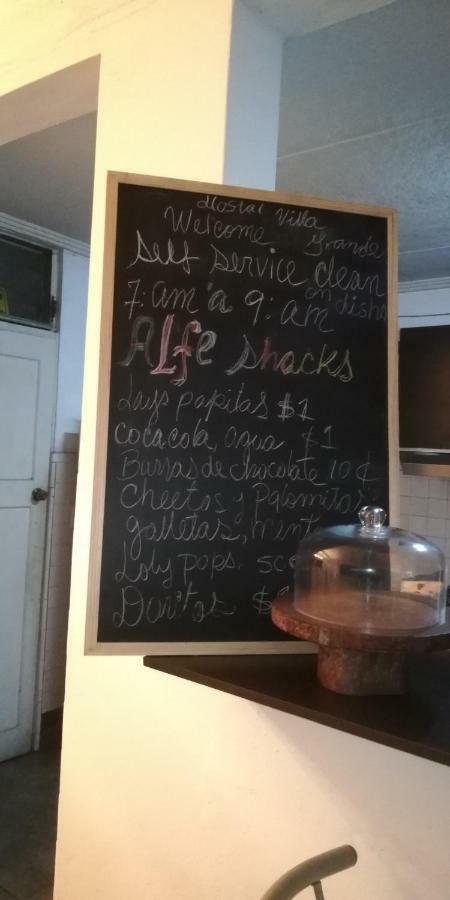 Hostal Villa
Welcome Grande
Self Service clean
7:am a 9:am on disha
Alfe shacks
Lays papitas $1
Coca cola, agua $1
Burras de chocolate 10 ¢
Cheetos y Palomitas
galletas, ment
Loly pops. 5c
Doritos $